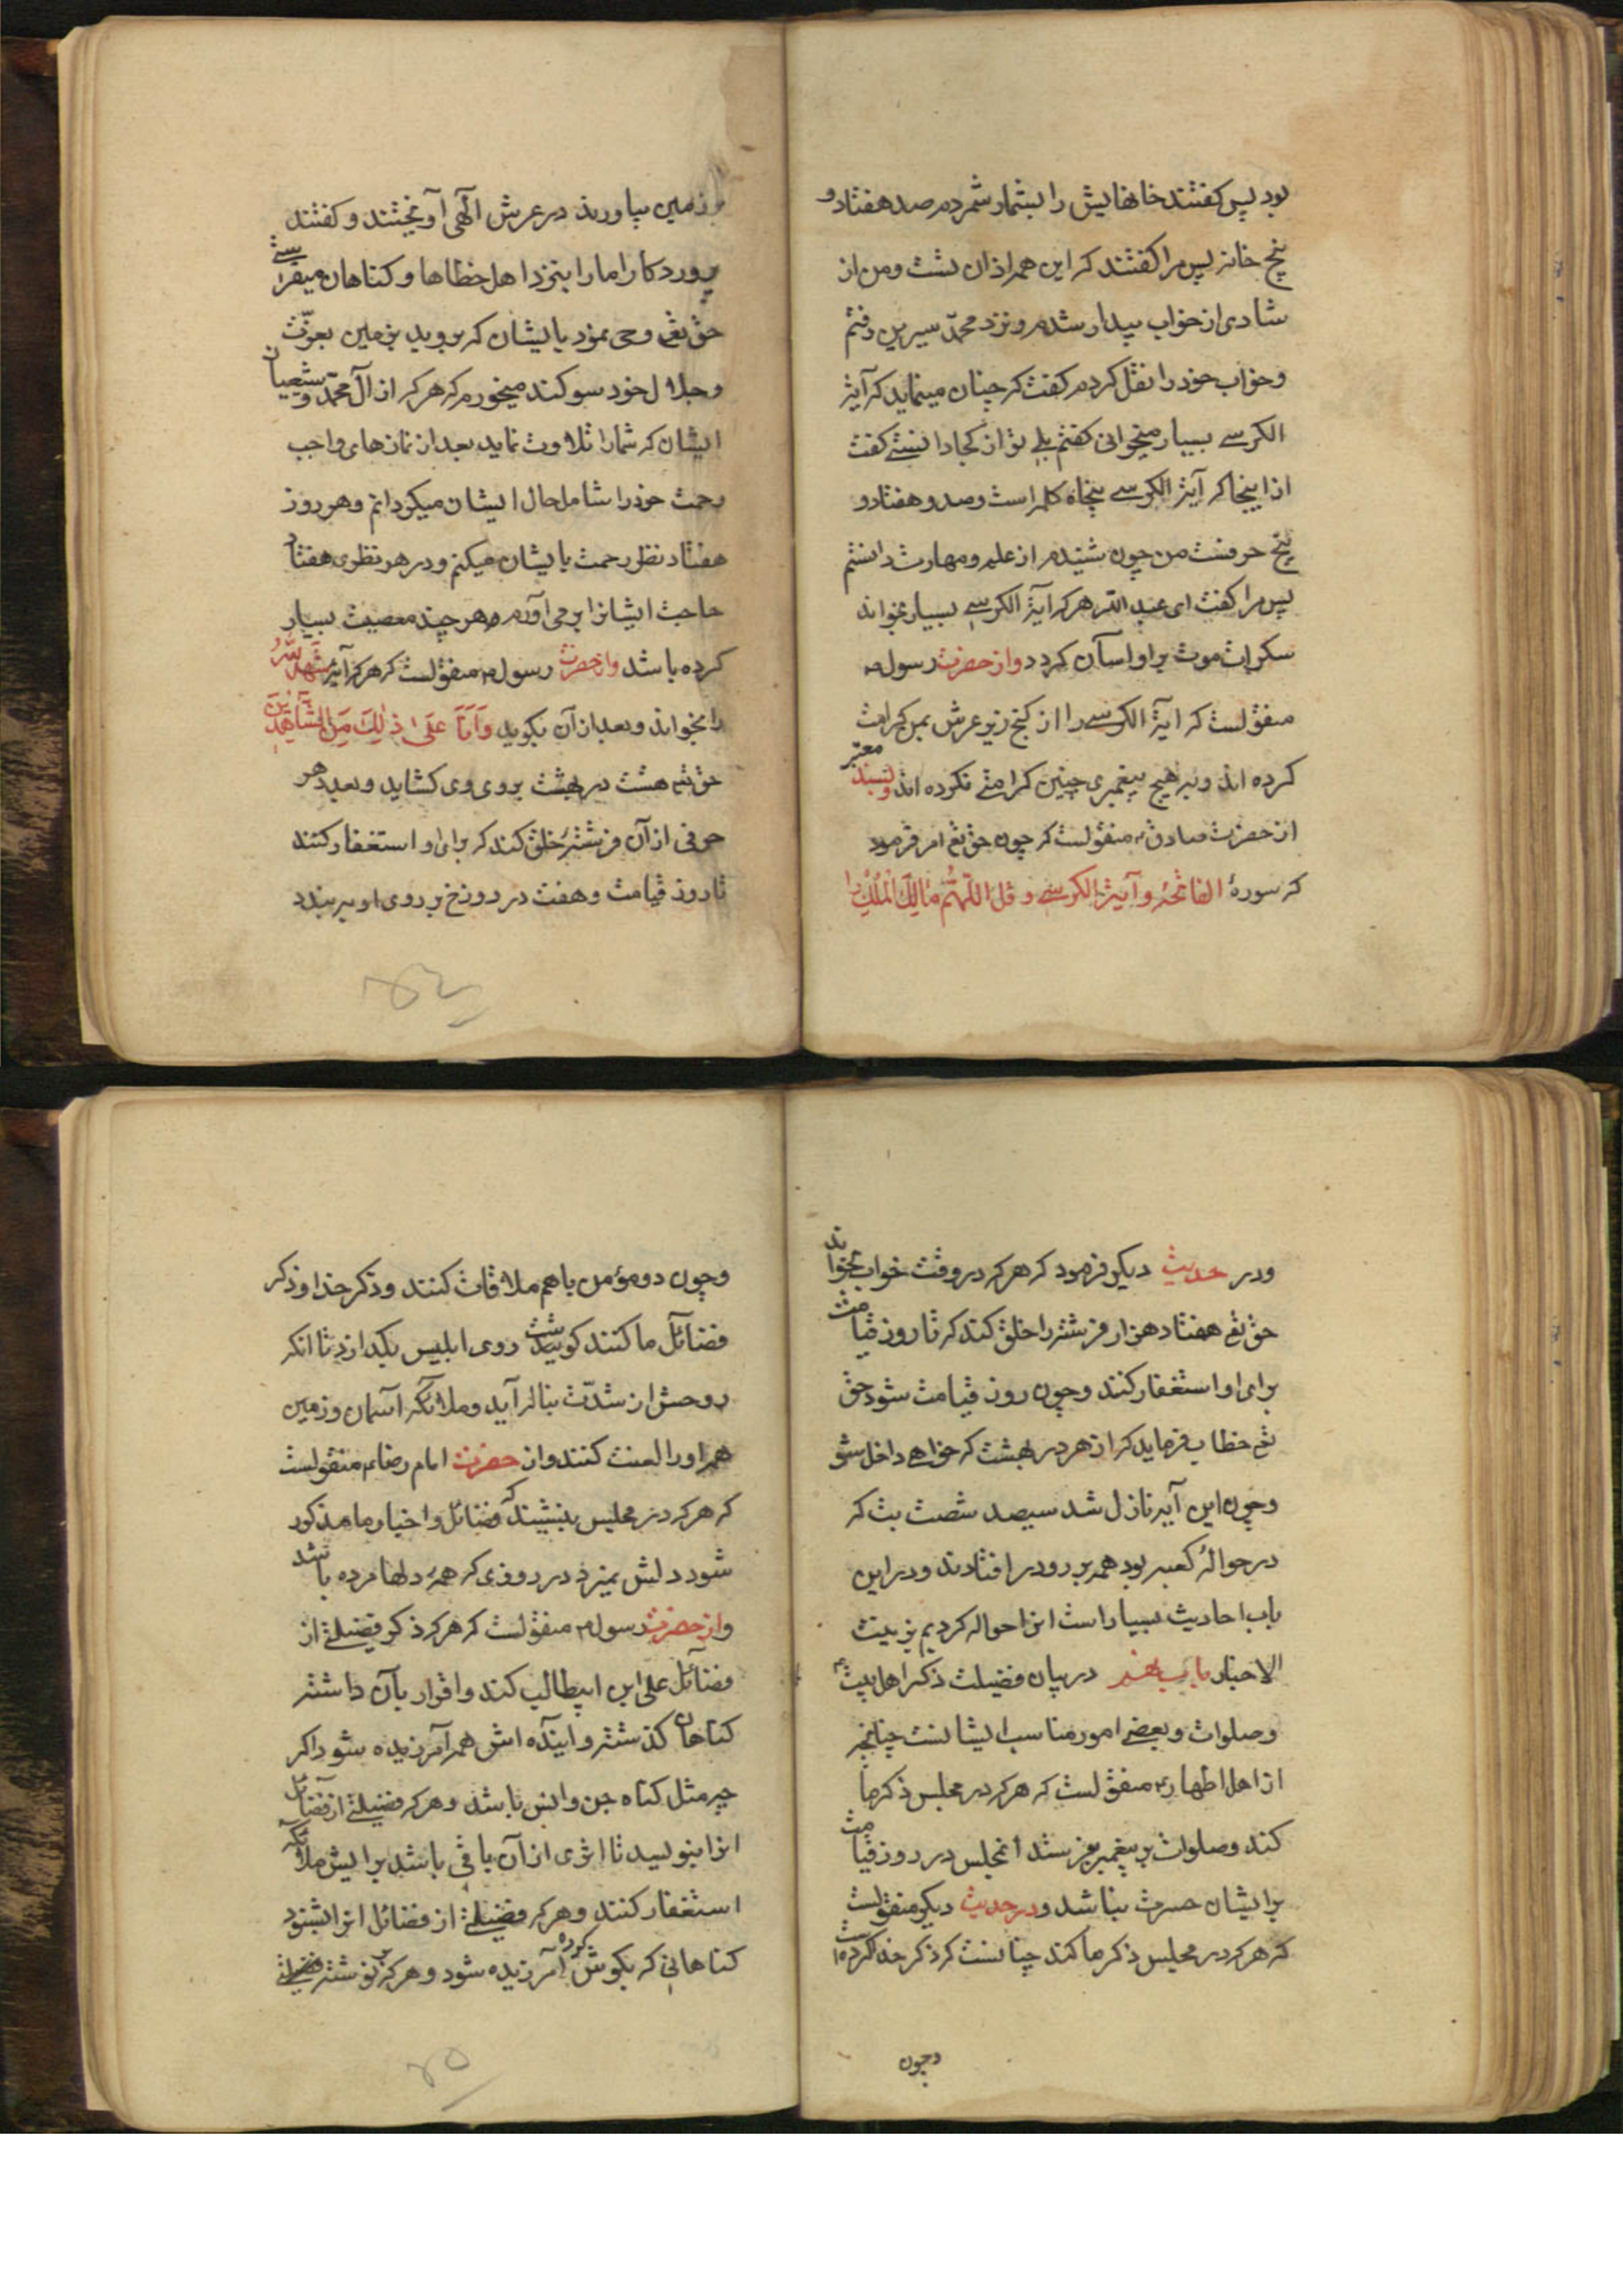 بود پس گفتند خانهایش را بشمار شمردم صد هفتاد و
پنج خانه پس مرا گفتند که این همه از ان تست و من از
شادی از خواب بیدار شدم و نزد محمّد سیرین رفتم
و خواب خود را نقل کردم گفت که چنان مینماید که آیة
الکرسے بسیار میخوانی گفتم بلے تو از کجا دانستے گفت
از اینجا که آیة الکرسے پنجاه کلمه است و صد و هفتاد و
پنج حرفست من چون شنیدم از علم و مهارت دانستم
پس مرا گفت ای عبد الله هر که آیة الکرسے بسیار بخواند
سکرات موت بر او اسآن کردد واز حضرت رسول ص
منقولست که ایة الکرسے را از کنج زیر عرش بمن کرامت
کرده اند و به هیچ پیغمبری چنین کرامتے نکرده اند وبسند معتبر
از حضرت صادق ع منقولست که چون حق تع امر فرمود
که سورهٔ الفاتحه و آیة الکرسے و قل اللّهمّ مالِكَ الْمُلْكِ را
بزمین بیاورند در عرش الهی آویختند و گفتند
پروردکارا ما را بنزد اهل خطاها و کناهان میفرستے
حق تع وحی نمود بایشان که بروید بزمین بعزّت
و جلال خود سوکند میخورم که هر که از آل محمّد و شیعیان
ایشان که شما را تلاوت نماید بعد از نمازهای واجب
رحمت خود را شامل حال ایشان میکردانم و هر روز
هفتاد نظر رحمت بایشان میکنم و در هر نظری هفتاد
حاجت ایشانرا بر می آورم و هر چند معصیت بسیار
کرده باشد واز حضرت رسول ص منقولست که هر که آیهٔ شهد اللهُ
را بخواند و بعد از آن بکوید وَاَنَا عَلىٰ ذٰلِكَ مِنَ الشّاهِدينَ
حق تع هشت در بهشت بروی وی کشاید و بعدد هر
حرفی از آن فرشتهٔ خلق کند که برای او استغفار کنند
تا روز قیامت و هفت در دوزخ بر روی او ببرندد
ودر حدیث دیکر فرمود که هر که در وقت خواب بخواند
حق تع هفتاد هزار فرشته را خلق کند که تا روز قیامت
برای او استغفار کنند و چون روز قیامت شود حق
تع خطاب فرماید که از هر در بهشت که خواهے داخل شو
و چون این آیه نازل شد سیصد شصت بت که
در حوالهٔ کعبه بود همه بر رو در افتادند و در این
باب احادیث بسیار است انرا حواله کردیم بزینت
الاخبار باب هفتم در بیان فضیلت ذکر اهل بیت ع
و صلوات و بعضے امور مناسب ایشانست چنانچه
از اهل اطهار ع منقولست که هر که در مجلس ذکر ما
کند و صلوات بر پیغمبر بفرستد انمجلس در روز قیامت
بر ایشان حسرت نباشد ودر حدیث دیکر منقولست
که هر که در مجلس ذکر ما کند چنانست که ذکر خدا کرده است
و چون
و چون دو مؤمن با هم ملاقات کنند و ذکر خدا و ذکر
فضائل ما کنند کوشت روی ابلیس بکدازد تا انکه
روحش از شدّت بناله آید و ملائکه آسمان و زمین
همه او را لعنت کنند واز حضرت امام رضا ع منقولست
که هر که در مجلس بنشیند که فضائل و اخبار ما مذکور
شود دلش نمیرد در روزی که همهٔ دلها مرده باشد
واز حضرت رسول ص منقولست که هر که ذکر فضیلتے از
فضائل علی ابن ابیطالب کند و اقرار بآن داشته
کناهان کذشته و اینده اش همه آمرزیده شود اکر
چه مثل کناه جن و انس باشد و هر که فضیلتے از فضائل
انرا بنویسد تا اثری از آن باقی باشد برایش ملائکه
استغفار کنند و هر که فضیلتے از فضائل انرا بشنود
کناهانی که بکوش کرده آمرزیده شود و هر که بر نوشته فضیلتے